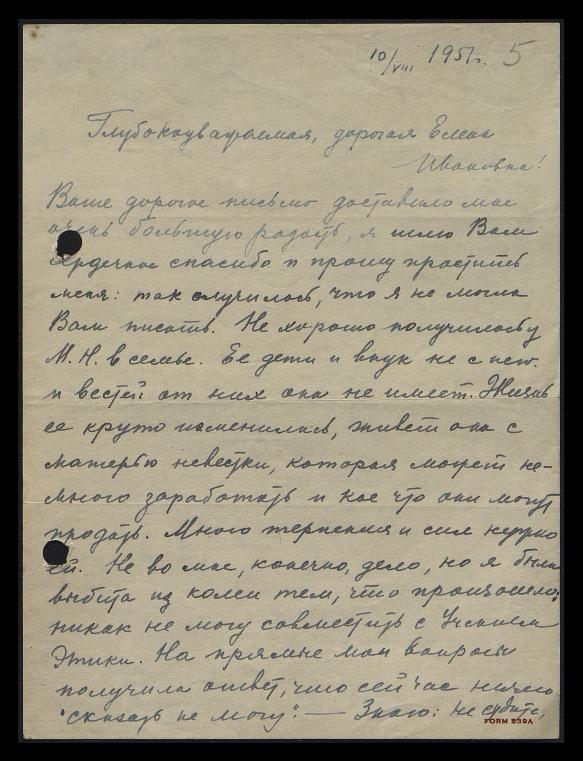 10/VIII 1951г. 5
Глубокоуважаемая, дорогая Елена
Ивановна!
Ваше дорогое письмо доставило мне
очень большую радость, я шлю Вам
сердечное спасибо и прошу простить
меня: так случилось, что я не могла
Вам писать. Не хорошо получилось у
М.Н. в семье. Ее дети и внук не с ней
и вестей от них она не имеет. Жизнь
ее круто изменилась, живет она с
матерью невестки, которая может не-
много заработать и кое что они могут
продать. Много терпения и сил нужно
ей. Не во мне, конечно, дело, но я была
выбита из колеи тем, что произошло:
никак не могу совместить с Учением
Этики. На прямые мои вопросы
получила ответ, что сейчас ничего
"сказать не могу". — Знаю: не судите,
FORM 539A